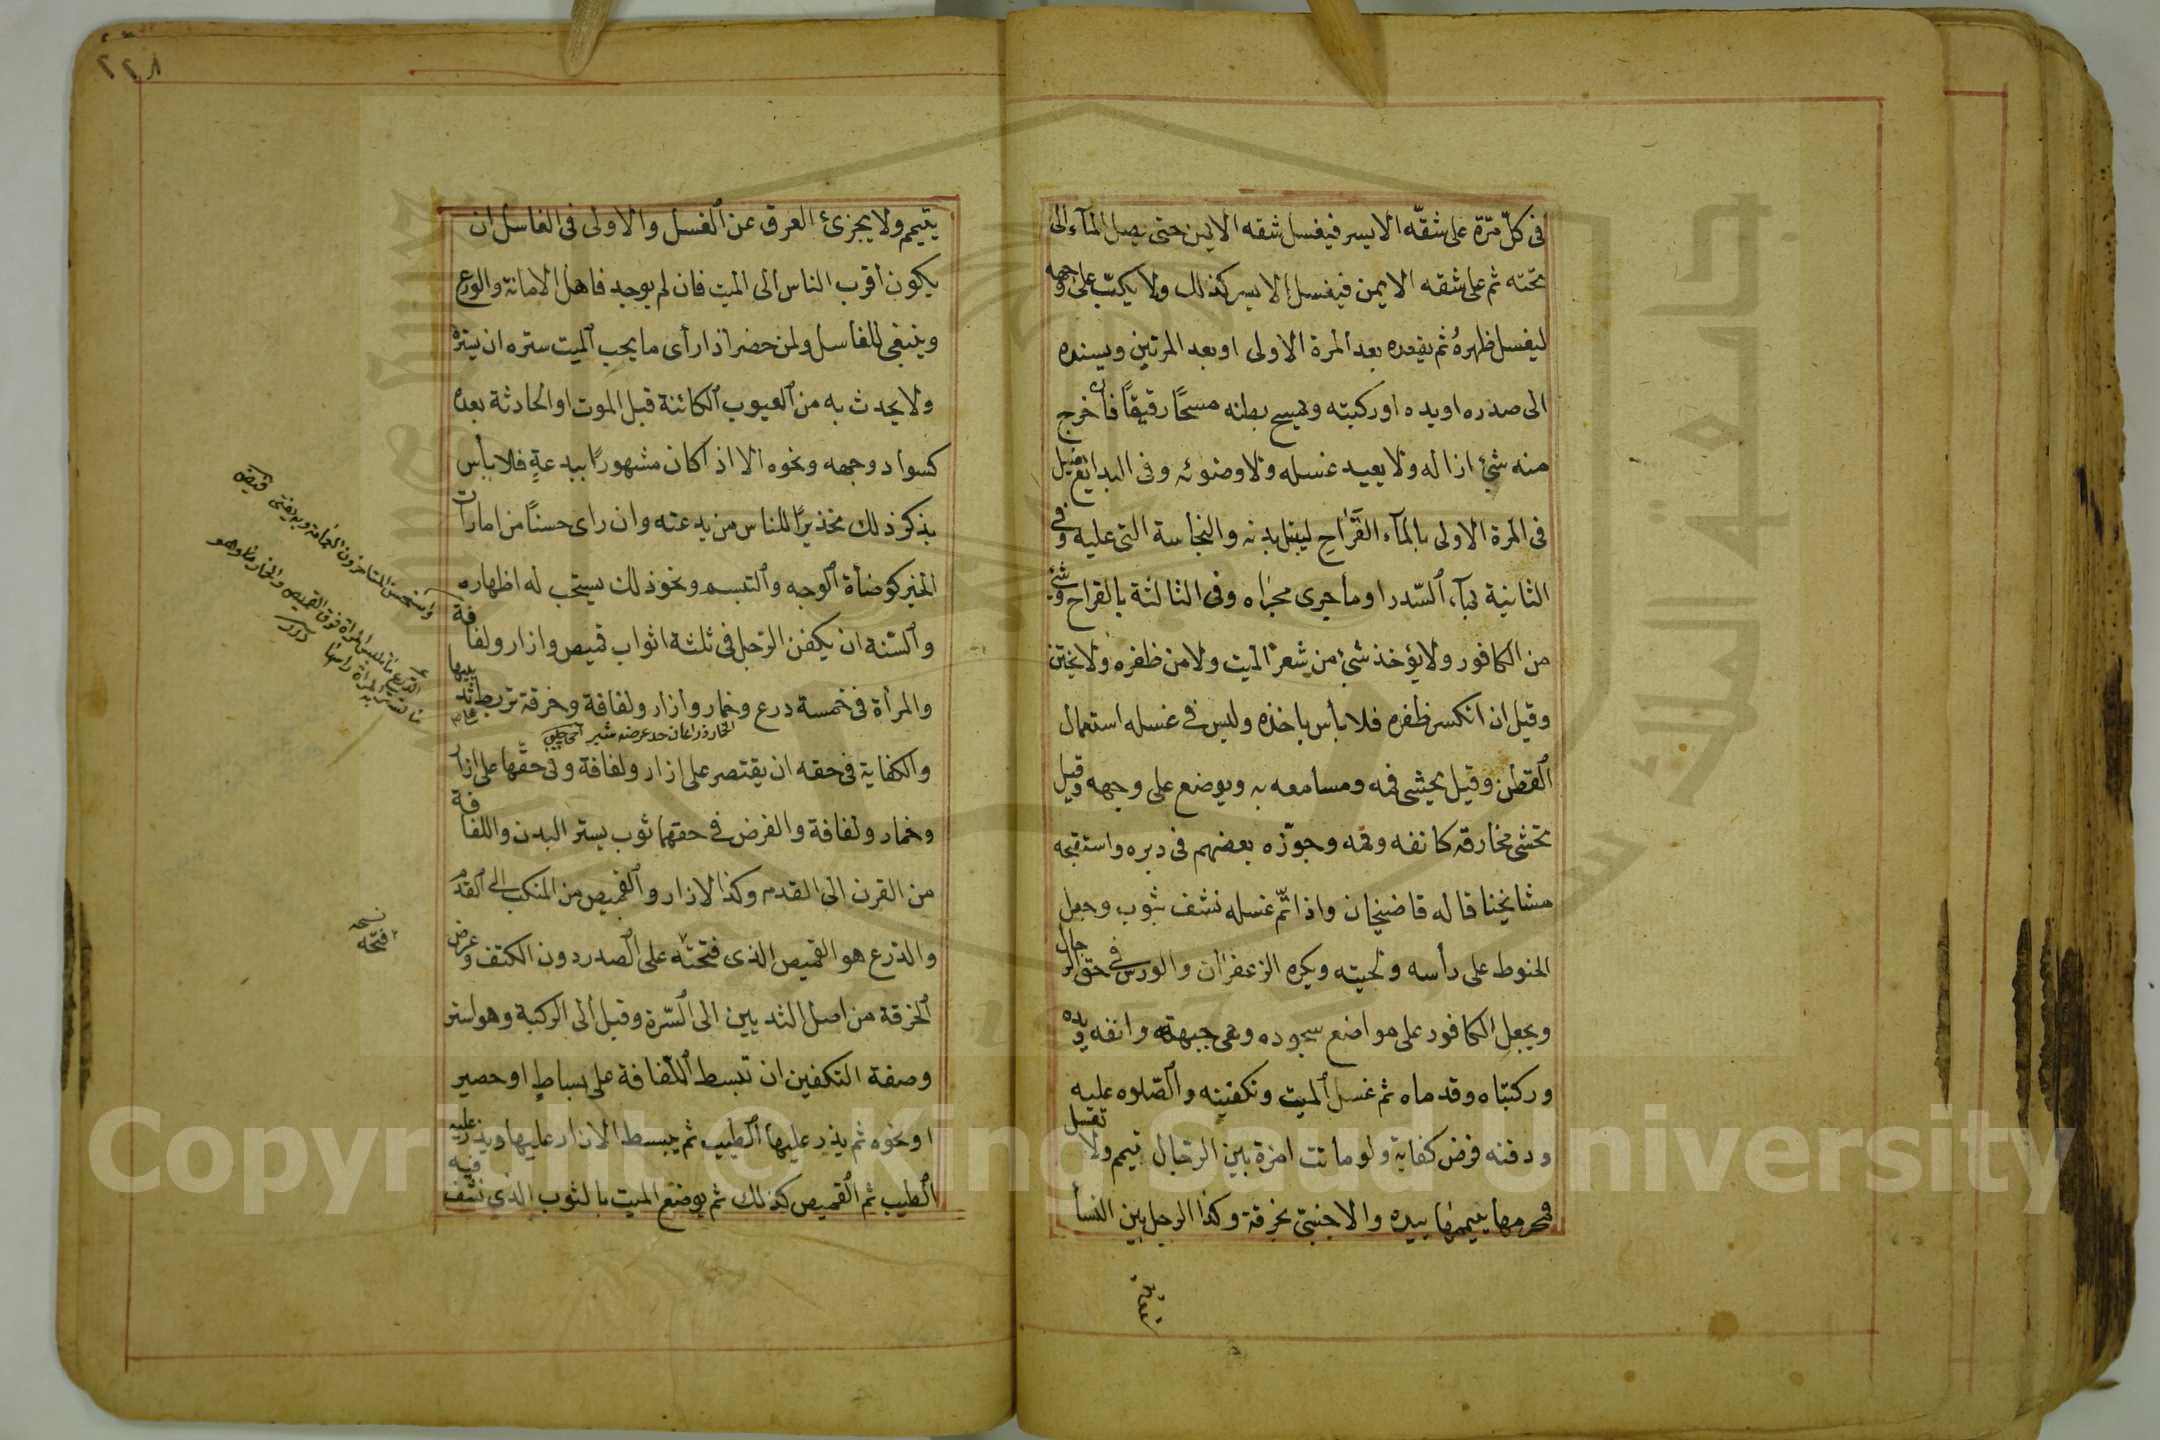 فى كلّ مرّة على شقّه الايسر فيغسل شقه الايمن حتى يصل المآء الى
تحته ثم على شقه الايمن فيغسل الايسر كذلك ولا يكبّ على وجهه
ليغسل ظهرهُ ثم يقعده بعد المرة الاولى او بعد المرتين ويسنده
الى صدره او يده او ركبته ويمسح بطنه مسحًا رقيقًا فان خرج
منه شئ ازاله ولا يعيد غسله ولا وضوئه وفى البدائع يغسل
فى المرة الاولى بالمآء القَرَاحِ ليبتل بدنه والنجاسة التى عليه وفى
الثانية بمآء السّدر او ما جرى مجراه وفى الثالثة بالقراح وشئ
من الكافور ولا يؤخذ شئ من شعر الميت ولا من ظفره ولا يختن
وقيل ان انكسر ظفره فلا بأس باخذه وليس فى غسله استعمال
القطن وقيل يحشى فمه ومسامعه به ويوضع على وجهه وقيل
تحشى مخارقه كانفه وفمه وجوّزه بعضهم فى دبره واستقبحه
مشايخنا قاله قاضيخان واذا تمّ غسله نشف بثوب وجعل
الحنوط على رأسه ولحيته ويكره الزعفران والورس فى حق الرجال
ويجعل الكافور على مواضع سجوده وهى جبهته وانفه ويده
وركبتاه وقدماه ثم غسل الميت وتكفينه والصّلوه عليه
ودفنه فرض كفاية ولو ماتت امرة بين الرجال تيمم ولا تغسل
فمحرمها ييممها بيده والاجنبىّ بخرقة وكذا الرجل بين النسأ
٢٢٨
يتيمم ولا يجزئ الغرق عن الغسل والاولى فى الغاسل ان
يكون اقرب الناس الى الميت فان لم يوجد فاهل الامانة والورع
وينبغى للغاسل ولمن حضر اذا رأى ما يجب الميت ستره ان يستره
ولا يحدث به من العيوب الكائنة قبل الموت او الحادثة بعده
كسواد وجهه ونحوه الا اذا كان مشهورًا ببدعةٍ فلا بأس
بذكر ذلك تحذيرًا للناس من بدعته وان راى حسنًا من امارات
الخير كوضأة الوجه والتبسم ونحو ذلك يستحب له اظهاره
والسّنة ان يكفن الرّجل فى ثلثة اثواب قميص وازار ولفافة
والمرأة فى خمسة درع وخمار وازار ولفافة وخرقة تربط ثدييها
الخمار ذراعان حد عرضه شبر
والكفاية فى حقه ان يقتصر على ازار ولفافة وفى حقّها على ازار
وخمار ولفافة والفرض فى حقهما ثوب يستر البدن واللفافة
من القرن الى القدم وكذا الازار والقميص من المنكب الى القدم
والدّرع هو القميص الذى فتحته على الصدر دون الكتف وعرض
الخرقة من اصل الثديين الى السّرة وقيل الى الركبة وهو استر
وصفة التكفين ان تبسط اللّفافة على بساطٍ او حصير
او نحوه ثم يذر عليها الطيب ثم يبسط الازار عليها ويذر عليه
الطيب ثم القميص كذلك ثم يوضع الميت بالثوب الذى نشف فيه
واستحسن المتاخرون العمامة وبه يفتى
الدرع ما تلبس المراة فوق القميص والخمار ما وهو
ما تستر به المرأة راسها
درر
نسخه
فتحه